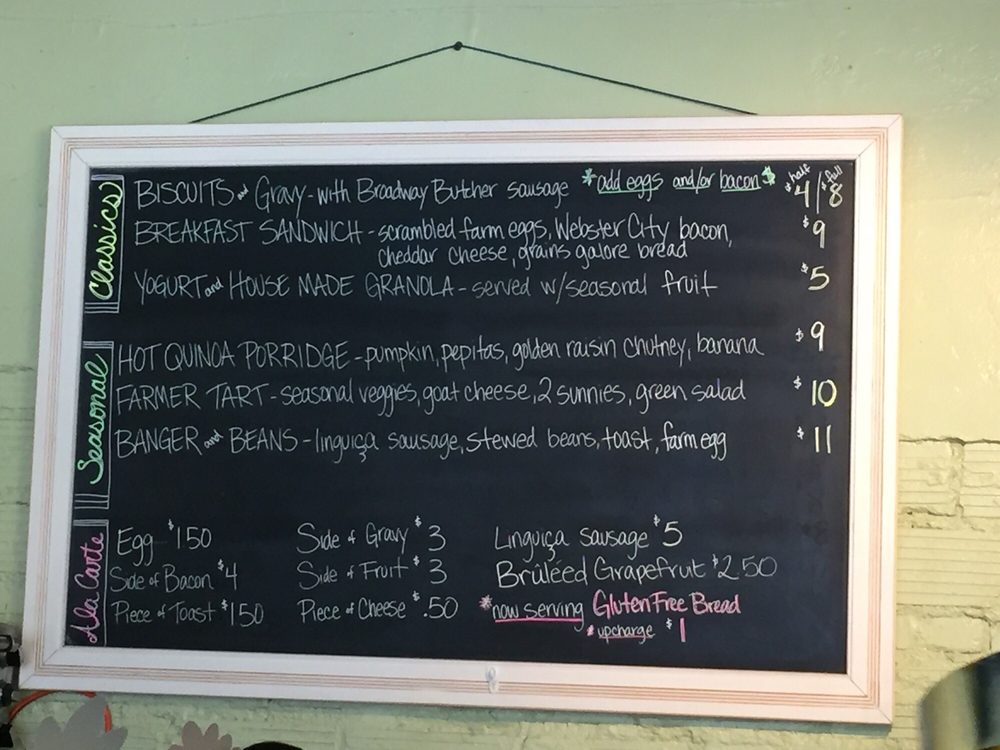 Classics
BISCUITS and Gravy - with Broadway Butcher sausage *add eggs and/or bacon* half $4 / full $8
BREAKFAST SANDWICH - scrambled farm eggs, Webster City bacon, $9
cheddar cheese, grains galore bread
YOGURT and HOUSE MADE GRANOLA - served w/seasonal fruit $5
Seasonal
HOT QUINOA PORRIDGE - pumpkin, pepitas, golden raisin chutney, banana $9
FARMER TART - seasonal veggies, goat cheese, 2 sunnies, green salad $10
BANGER and BEANS - linguiça sausage, stewed beans, toast, farm egg $11
Ala Carte
Egg $150 Side of Gravy $3 Linguiça Sausage $5
Side of Bacon $4 Side of Fruit $3 Brûléed Grapefruit $250
Piece of Toast $150 Piece of Cheese $.50 *now serving Gluten Free Bread
*upcharge $1